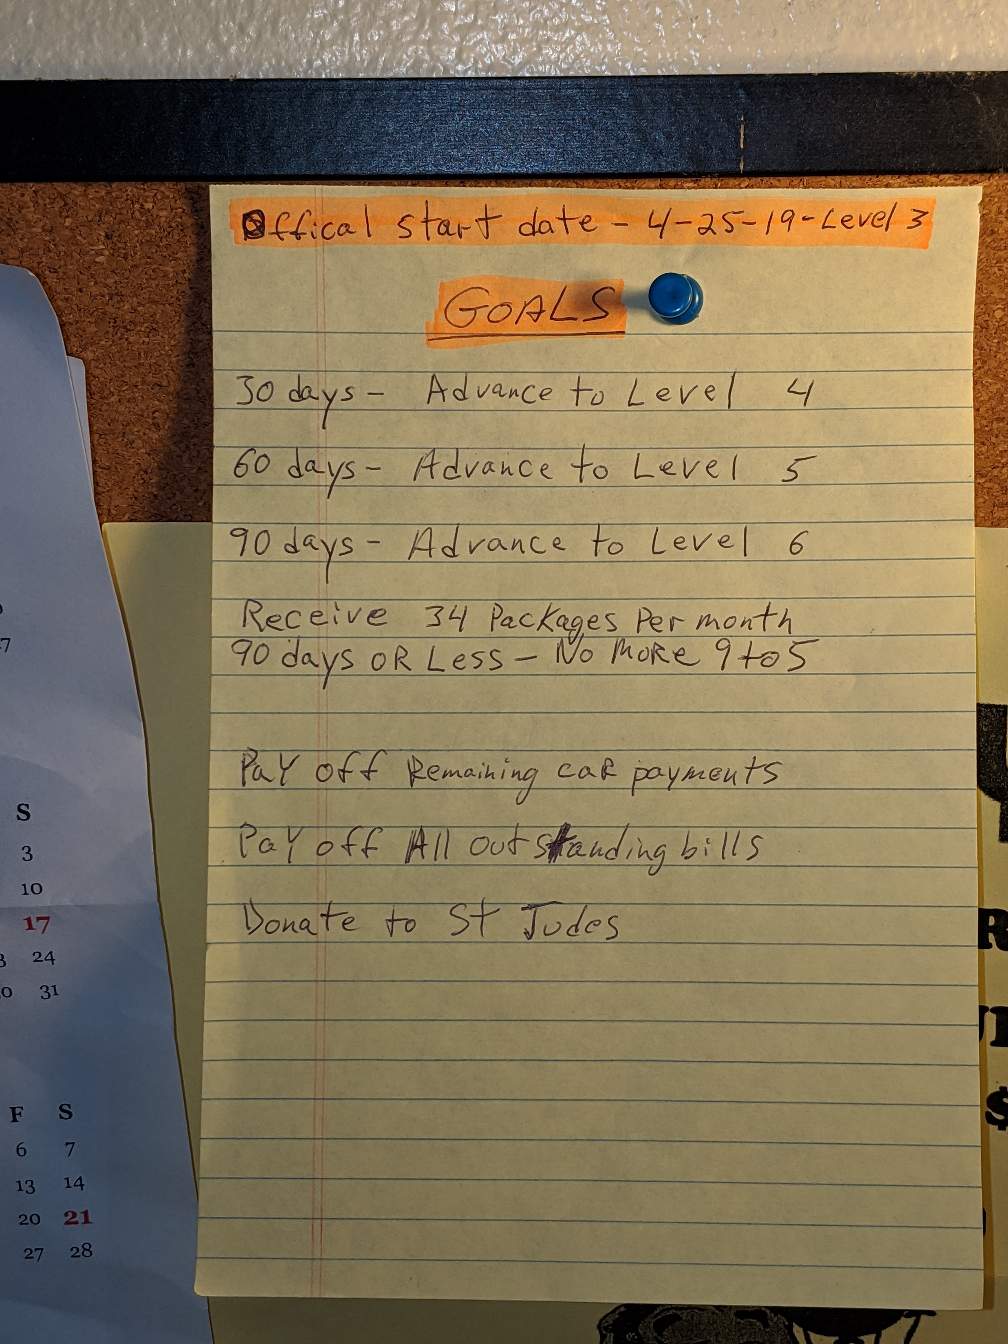 Offical start date - 4-25-19-Level 3
GOALS
30 days - Advance to Level 4
60 days - Advance to Level 5
90 days - Advance to Level 6
Receive 34 Packages Per month
90 days OR Less - No MORE 9 to 5
Pay off Remaining caR payments
Pay off All outstanding bills
Donate to St Judes
7
S
3
10
17
24
31
F S
6 7
13 14
20 21
27 28
R
$